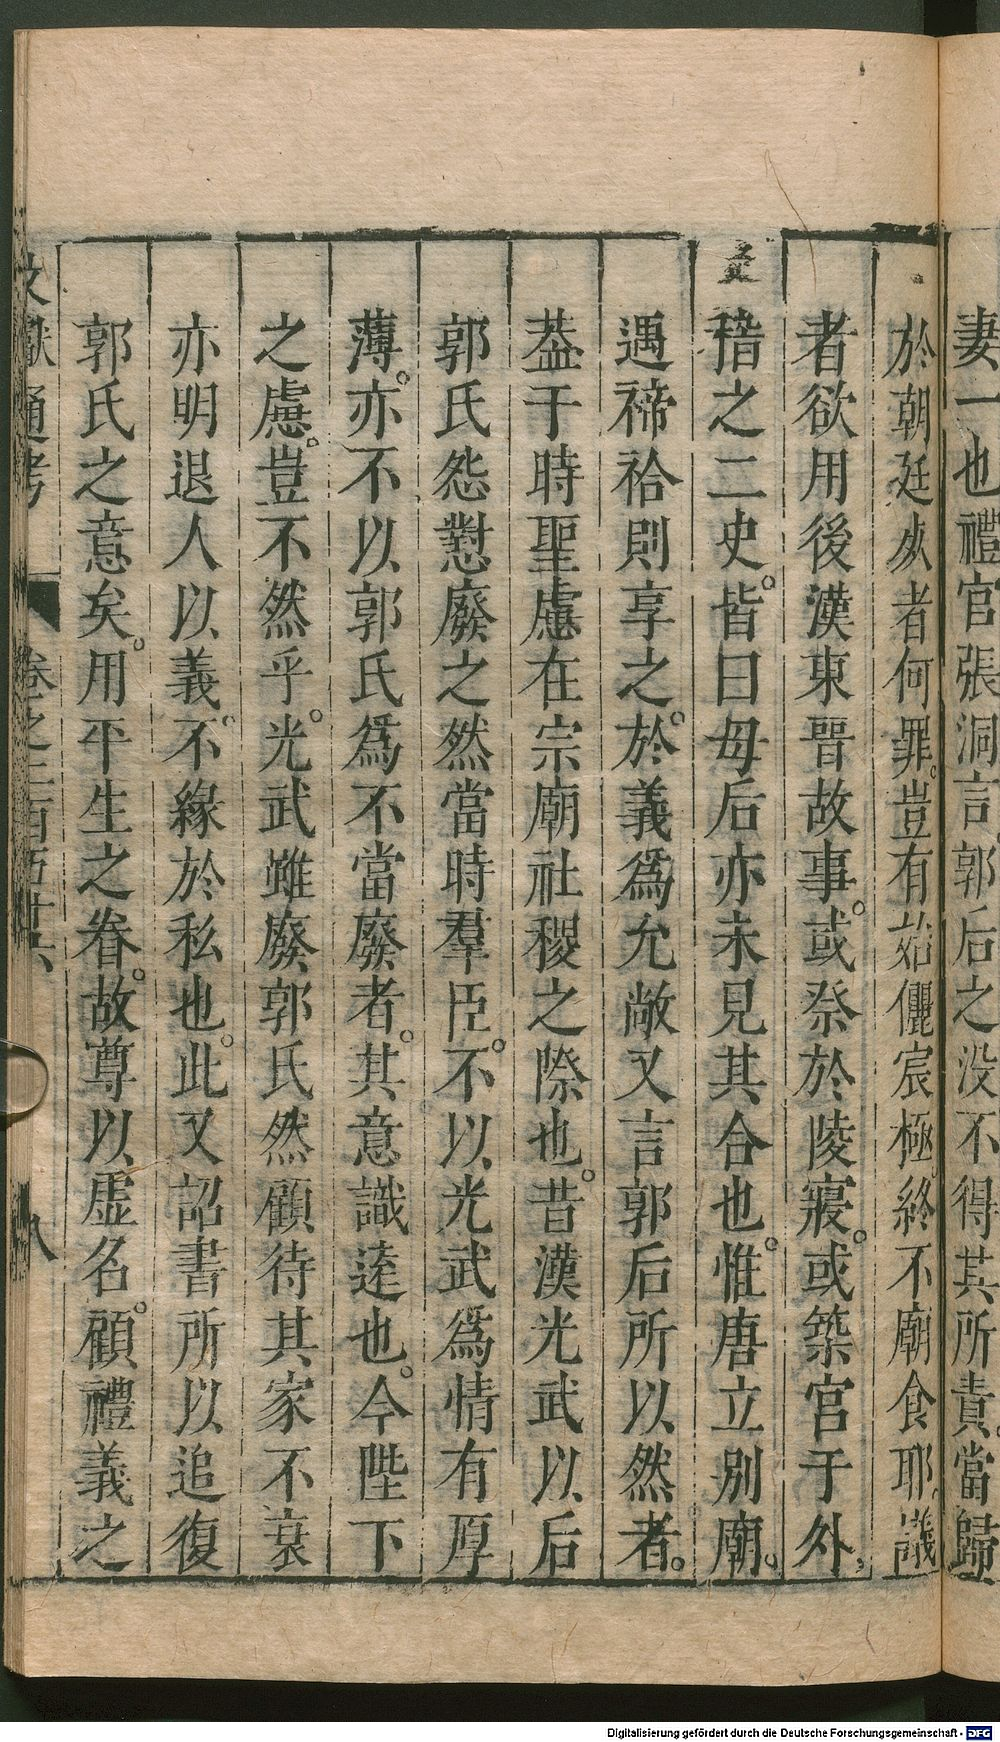 妻一也禮官張洞言郭后之没不得其所責。當歸
於朝廷死者何罪。豈有始儷宸極終不廟食耶。議
者欲用後漢東晋故事。或祭於陵寢。或築宮于外，
稽之二史。皆曰母后亦未見其合也。惟唐立別廟。
遇禘祫則享之。於義爲允敞又言郭后所以然者。
葢于時聖慮在宗廟社稷之際也。昔漢光武以后
郭氏怨懟廢之然當時羣臣。不以光武爲情有厚
薄。亦不以郭氏爲不當廢者。其意識逹也。今陛下
之慮。豈不然乎。光武雖廢郭氏然顧待其家不衰
亦明退人以義。不緣於私也。此又詔書所以追復
郭氏之意矣。用平生之眷。故尊以虚名。顧禮義之
文獻通考 卷之二百五十六 八
Digitalisierung gefördert durch die Deutsche Forschungsgemeinschaft - DFG